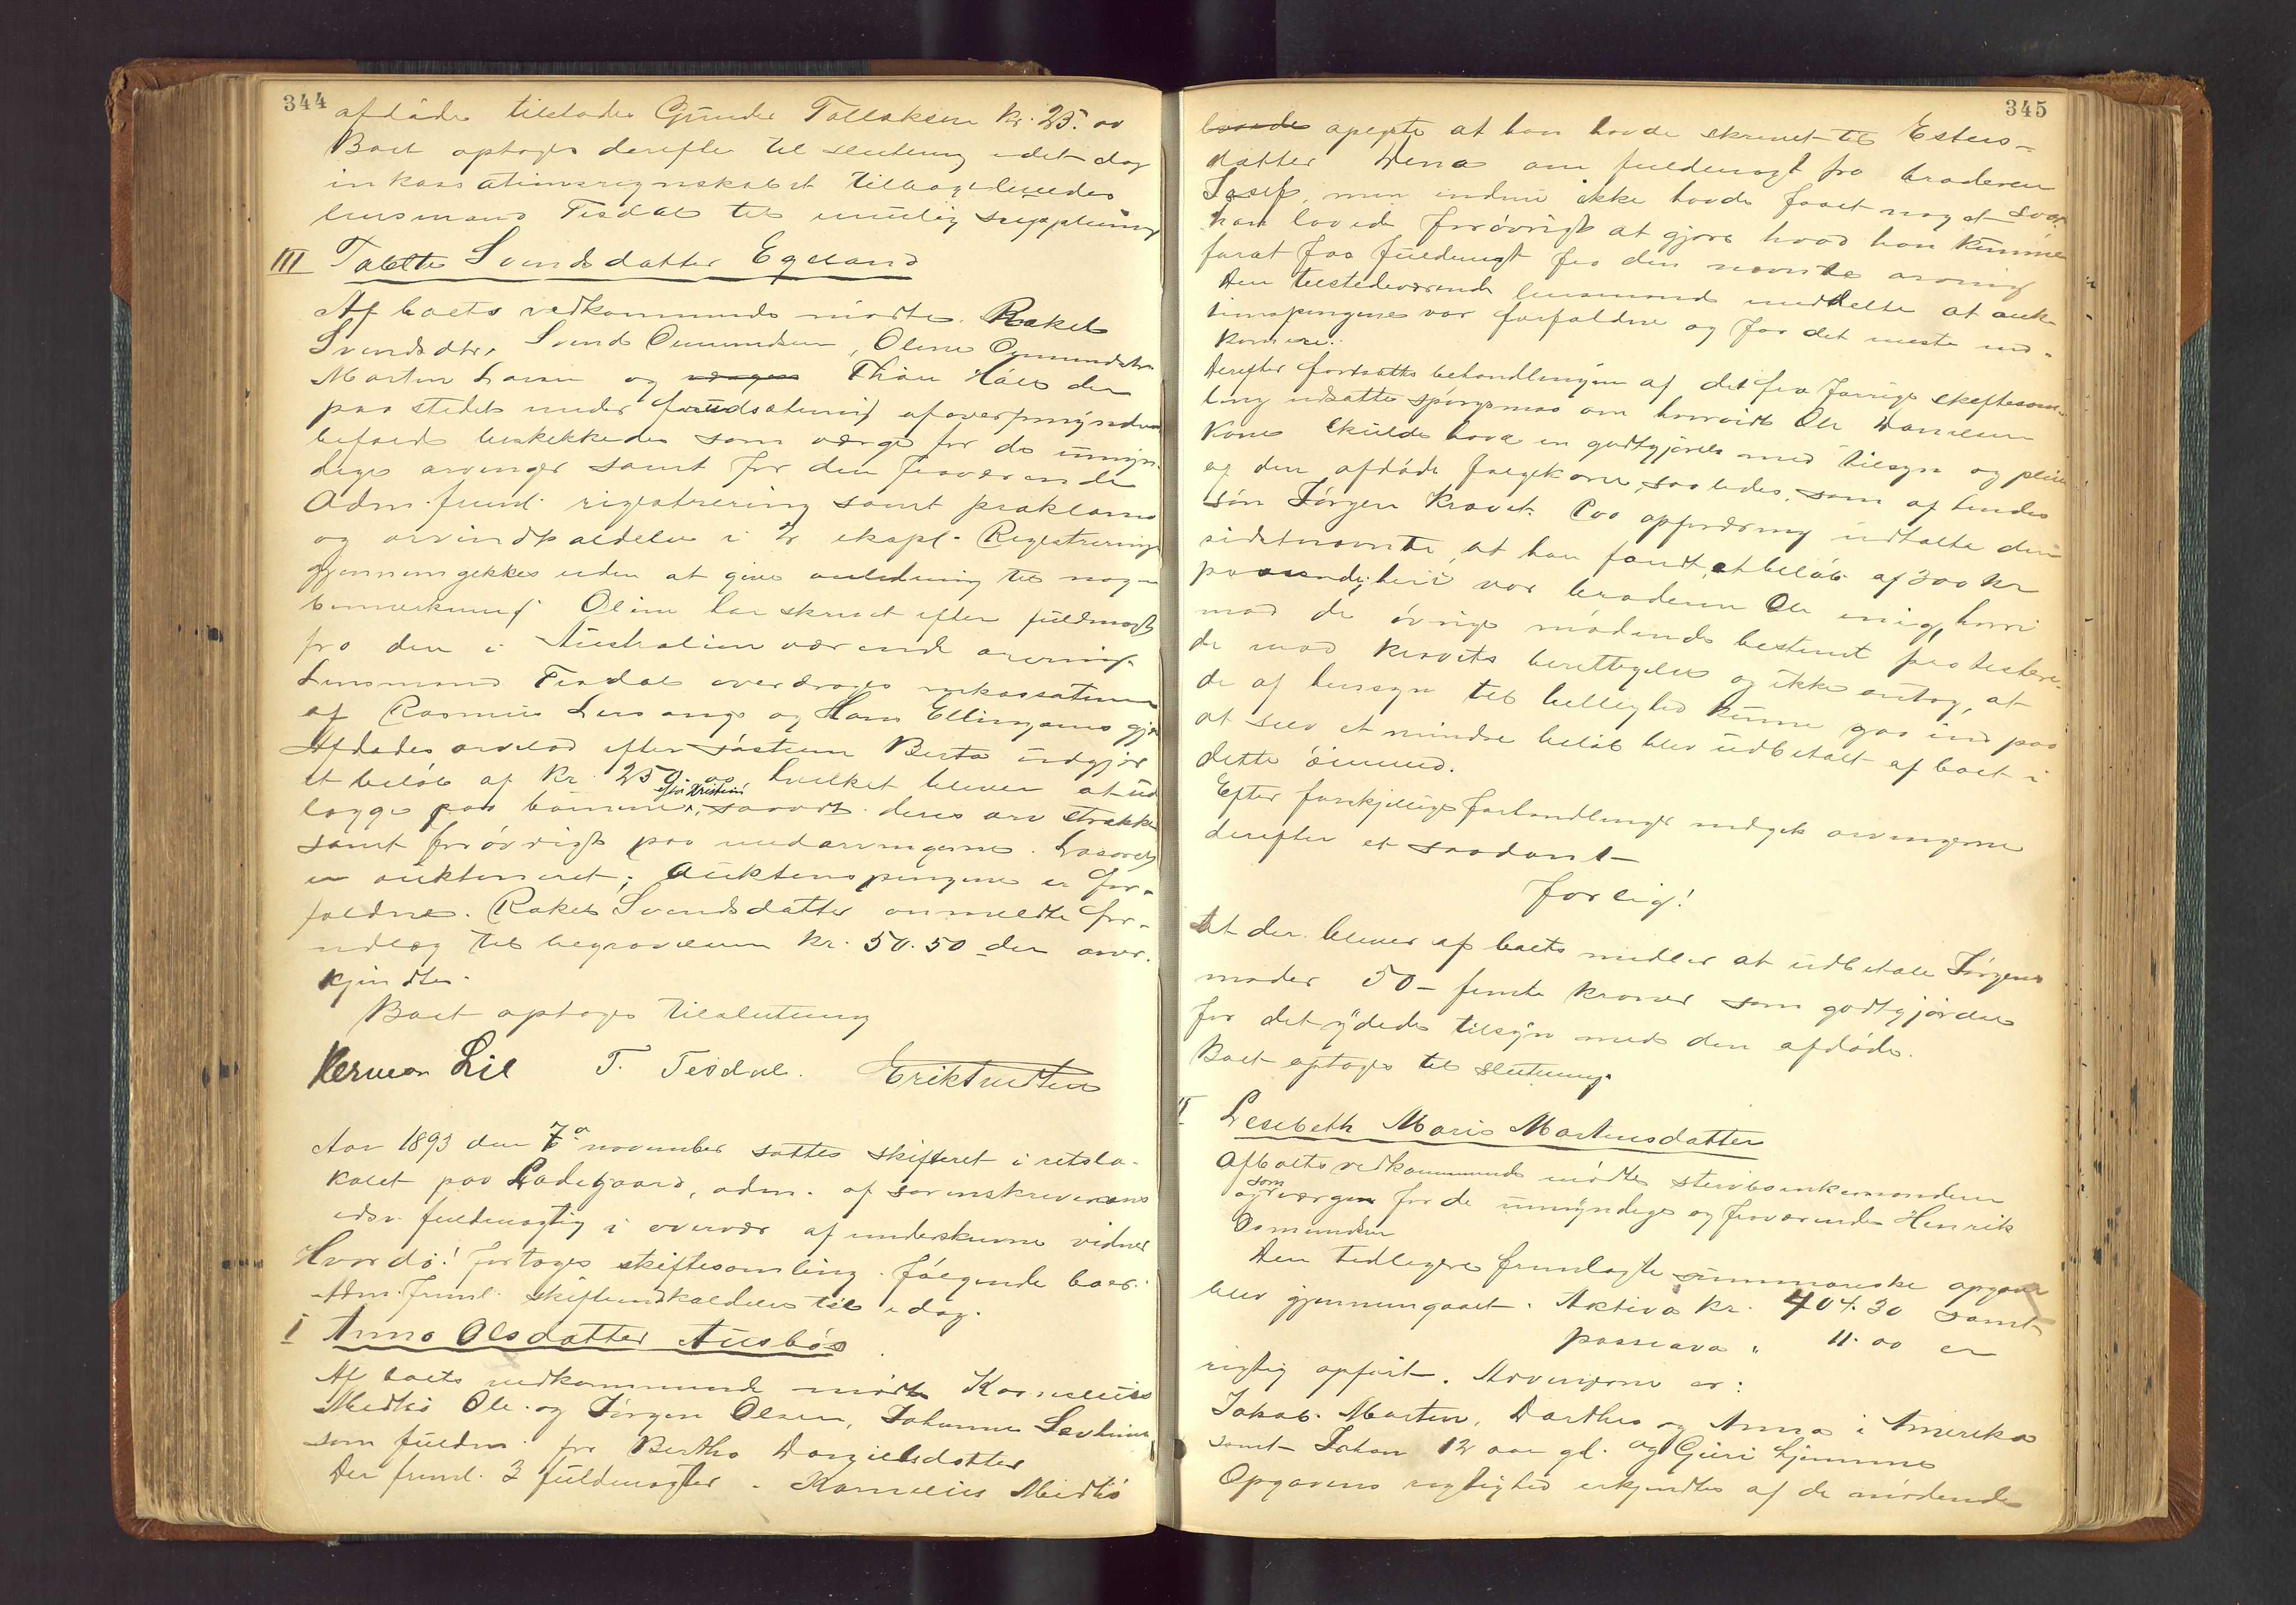 344
afdøde tilstodes Gunder Tollaksen kr. 25.00
Boet optoges derefter til slutning idet dog
inkassationsregnskabet tilbageleveredes
lensmand Tesdal til mulig supplering
III Tolette Svendsdatter Egeland
Af boets vedkommende mødte Rakel
Svendsdtr, Svend Omundsen, Oline Omundsdtr
Morten Larsen og Thore Håes der
paa stedet under forudsætning af overformynder
befaed beskikkedes som værge for de umyn-
dige arvinger samt for den fraværende
Adm. freml. registrering samt proklama
og arvindkaldelse i 2 expl. Registrering
gjennemgikkes uden at give anledning til nogen
bemerkning. Oline har skrevet efter fuldmagt
fra den i Australien værende arving.
Lensmand Tesdal overdroges inkassationen
af Rasmus og Hans Ellingsens gjæ
Afdødes arvelod efter søsteren Berta udgjør
et beløb af kr. 250.00, hvilket bliver at ud
lægge paa børnene efter Kristine, saavidt deres arv strækker
samt forøvrigt paa medarvingerne. Løsøret
er auktioneret; Auktionspengene er for-
faldne. Rakel Svendsdatter anmeldte for-
udlæg til begravelsen kr. 50.50 der aner-
kjendtes.
Boet optoges til slutning
Herman Lie T. Tesdal. Erik Knudsen
Aar 1893 den 7de november sattes skifteret i retslo-
kalet paa Ladegaard, adm. af sorenskriverens
edsv. fuldmægtig i overvær af underskrevne vidner
Hvorda! foretoges skiftesamling i følgende boer:
Adm. freml. skifteindkaldelse til idag.
I Anna Olsdatter Ausbø
Af boets vedkommende mødte Kornelius
Medhø Ole og Jørgen Olsen, Johannes
som fuldm. for Bertha Danielsdatter
Der freml. 3 fuldmagter. Kornelius Medhø
345
havde opgivet at han havde skrevet til Esters-
datter Dena om fuldmagt fra broderen
Josef, men endnu ikke havde faaet noget svar.
han lovede forøvrigt at gjøre hvad han kunne
forat faa fuldmagt fra den nævnte arving
Den tilstedeværende lensmand meddelte at auk-
tionspengene var forfaldne og for det meste ind-
komne.
Derefter fortsattes behandlingen af det fra forrige skiftesam-
ling udsatte spørgsmaal om hvorvidt Ole Danielsen
Kone skulde have en godtgjørelse med tilsyn og pleie
af den afdøde folgekone, saaledes som af hendes
søn Jørgen krævet. Paa opfordring udtalte den
sidstnævnte, at han fandt et beløb af 300 kr
passende; heri var broderen Ole enig, hvori-
mod de øvrige mødende bestemt protestere-
de mod kravets berettigelse og ikke antog, at
de af hensyn til billighed kunne gaa ind paa
at selv et mindre beløb blev udbetalt af boet i
dette øiemed.
Efter forskjellige forhandlinger indgik arvingerne
derefter et saadant
Forlig!
At der bliver af boets midler at udbetale Jørgens
moder 50 – femti kroner som godtgjørelse
for det ydede tilsyn med den afdøde.
Boet optoges til slutning.
II Lesebeth Marie Martinsdatter
Af boets vedkommende mødte sterbosenkemanden
og som værgen for de umyndige og fraværende Henrik
Osmundsen
Den tidligere fremlagte summariske opgave
blev gjennemgaaet. Aktiva kr. 404.30 samt
passiava " 11.00 er
rigtig opført. Arvingerne er:
Jakob. Morten, Dorthea og Anna i Amerika
samt Johan 12 aar gl. og Guri hjemme
Opgavens rigtighed erkjendtes af de mødende